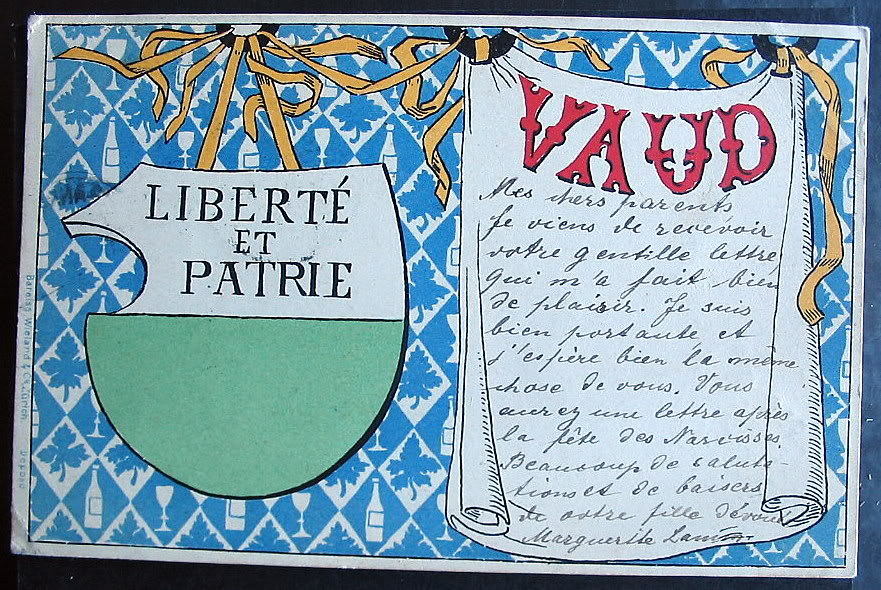 LIBERTÉ
ET
PATRIE
VAUD
Mes chers parents
Je viens de recevoir
votre gentille lettre
qui m'a fait bien
de plaisir. Je suis
bien portante et
j'espère bien la même
chose de vous. Vous
aurez une lettre après
la fête des Narcisses.
Beaucoup de saluta-
tions et de baisers
de votre fille dévouée
Marguerite
Wieland & Co. Zürich. Déposé